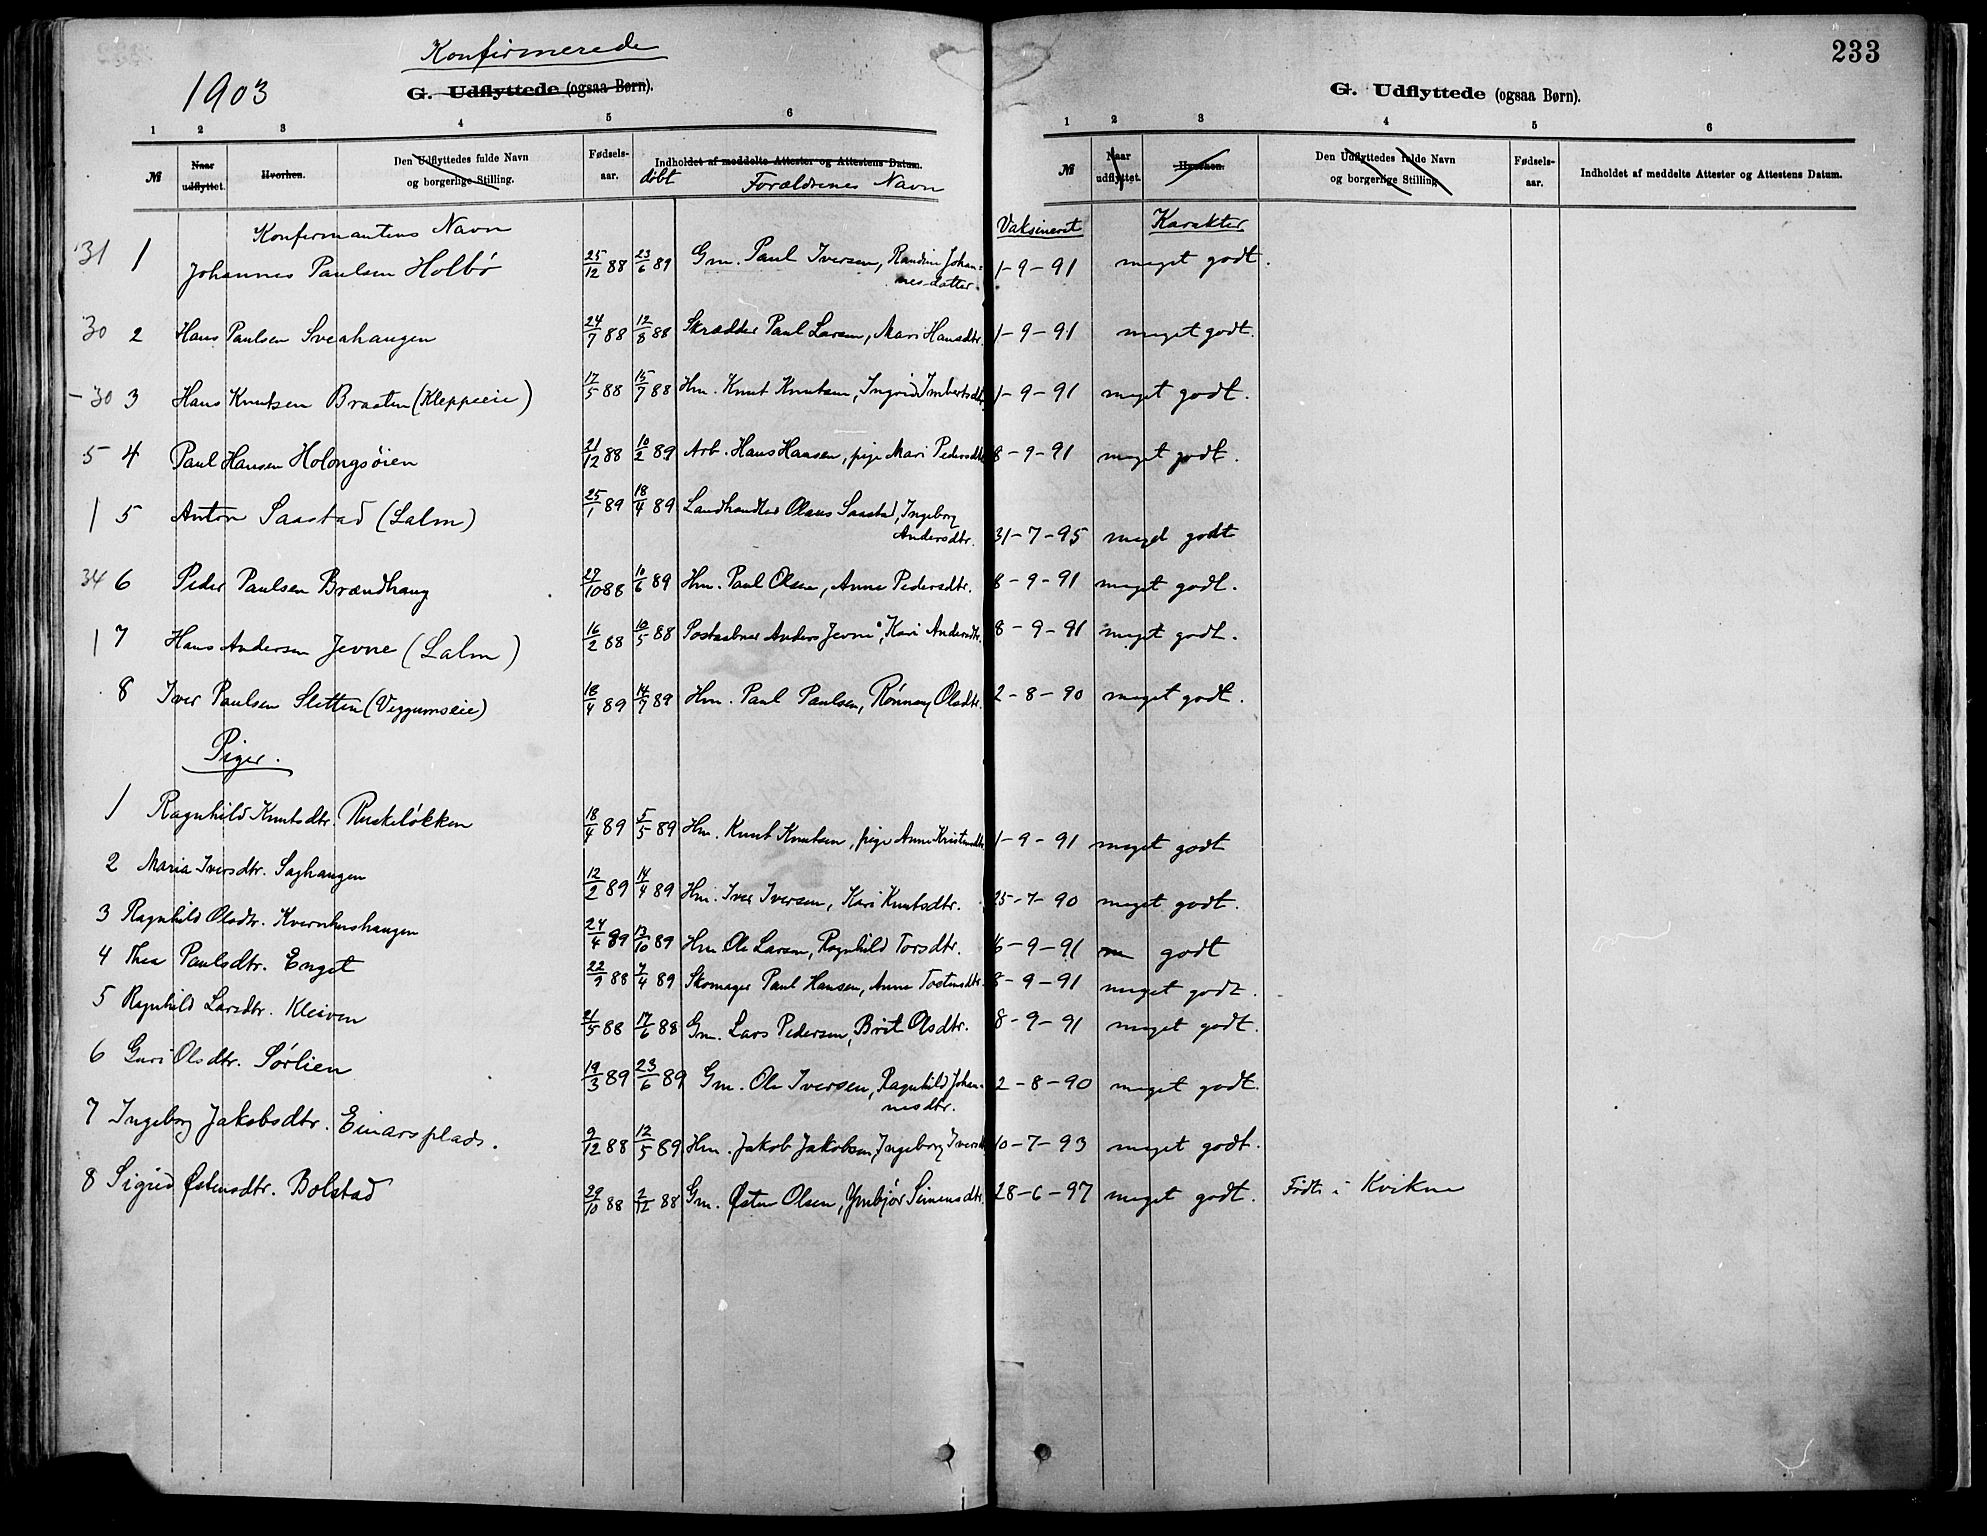 Konfirmerede
1903
G. Udflyttede (ogsaa Børn).
1 2 3 4 5 6
№ Naar udflyttet. Hvorhen. Den Udflyttedes fulde Navn og borgerlige Stilling. Fødsels-aar. døbt Indholdet af meddelte Attester og Attestens Datum. Forældrenes Navn
233
G. Udflyttede (ogsaa Børn).
1 2 3 4 5 6
№ Naar udflyttet. Hvorhen. Den Udflyttedes fulde Navn og borgerlige Stilling. Fødsels-aar. Indholdet af meddelte Attester og Attestens Datum.
Konfirmantens Navn Vaksineret Karakter
31 1 Johannes Paulsen Holbø 25/12 88 23/6 89 Gm. Paul Iversen, Randine Johan-
nesdatter 1-9-91 meget godt.
30 2 Hans Paulsen Sveahaugen 24/7 88 12/8 88 Skrædder Paul Larsen, Mari Hansdtr. 1-9-91 meget godt.
-30 3 Hans Knutsen Braaten (Kleppeeie) 17/5 88 15/7 88 Hm. Knut Knutsen, Ingrid Imbertsdtr 1-9-91 meget godt.
5 4 Paul Hansen Holongsøien 21/12 88 10/2 89 Arb. Hans Hansen, pige Mari Pedersdtr 8-9-91 meget godt.
1 5 Anton Saastad (Lalm) 25/1 89 18/4 89 Landhandler Olaus Saastad, Ingeborg
Andersdtr. 31-7-95 meget godt
34 6 Peder Paulsen Brændhaug 27/10 88 10/6 89 Hm. Paul Olsen, Anne Pedersdtr. 8-9-91 meget godt.
1 7 Hans Andersen Jevne (Lalm) 16/2 88 10/5 88 Postaabner Anders Jevne, Kari Andersdtr. 8-9-91 meget godt.
8 Iver Paulsen Sletten (Veggumseie) 18/4 89 14/7 89 Hm. Paul Paulsen, Rønnaug Olsdtr. 2-8-90 meget godt.
Piger.
1 Ragnhild Knutsdtr. Ruskeløkken 18/4 89 5/5 89 Hm. Knut Knutsen, pige Anne Kristensdtr 1-9-91 meget godt
2 Maria Iversdtr. Saghaugen 12/2 89 14/4 89 Hm. Iver Iversen, Kari Knutsdtr. 25-7-90 meget godt.
3 Ragnhild Olsdtr. Kvernhushaugen 24/4 89 13/10 89 Hm Ole Larsen, Ragnhild Torsdtr. 16-9-91 m godt
4 Thea Paulsdtr. Enget 22/9 88 7/4 89 Skomager Paul Hansen, Anne Tostensdtr. 8-9-91 meget godt.
5 Ragnhild Larsdtr. Kleiven 21/5 88 17/6 88 Gm. Lars Pedersen, Brit Olsdtr. 8-9-91 meget godt.
6 Guri Olsdtr. Sørlien 19/3 89 23/6 89 Gm. Ole Iversen, Ragnhild Johan-
nesdtr. 2-8-90 meget godt.
7 Ingeborg Jakobsdtr. Einarsplads. 9/12 88 12/5 89 Hm. Jakob Jakobsen, Ingeborg Iversdtr 10-7-93 meget godt.
8 Sigrid Østensdtr. Bolstad 29/10 88 2/12 88 Gm. Østen Olsen, Ymbjør Simensdtr. 28-6-97 meget godt. Født i Kvikne